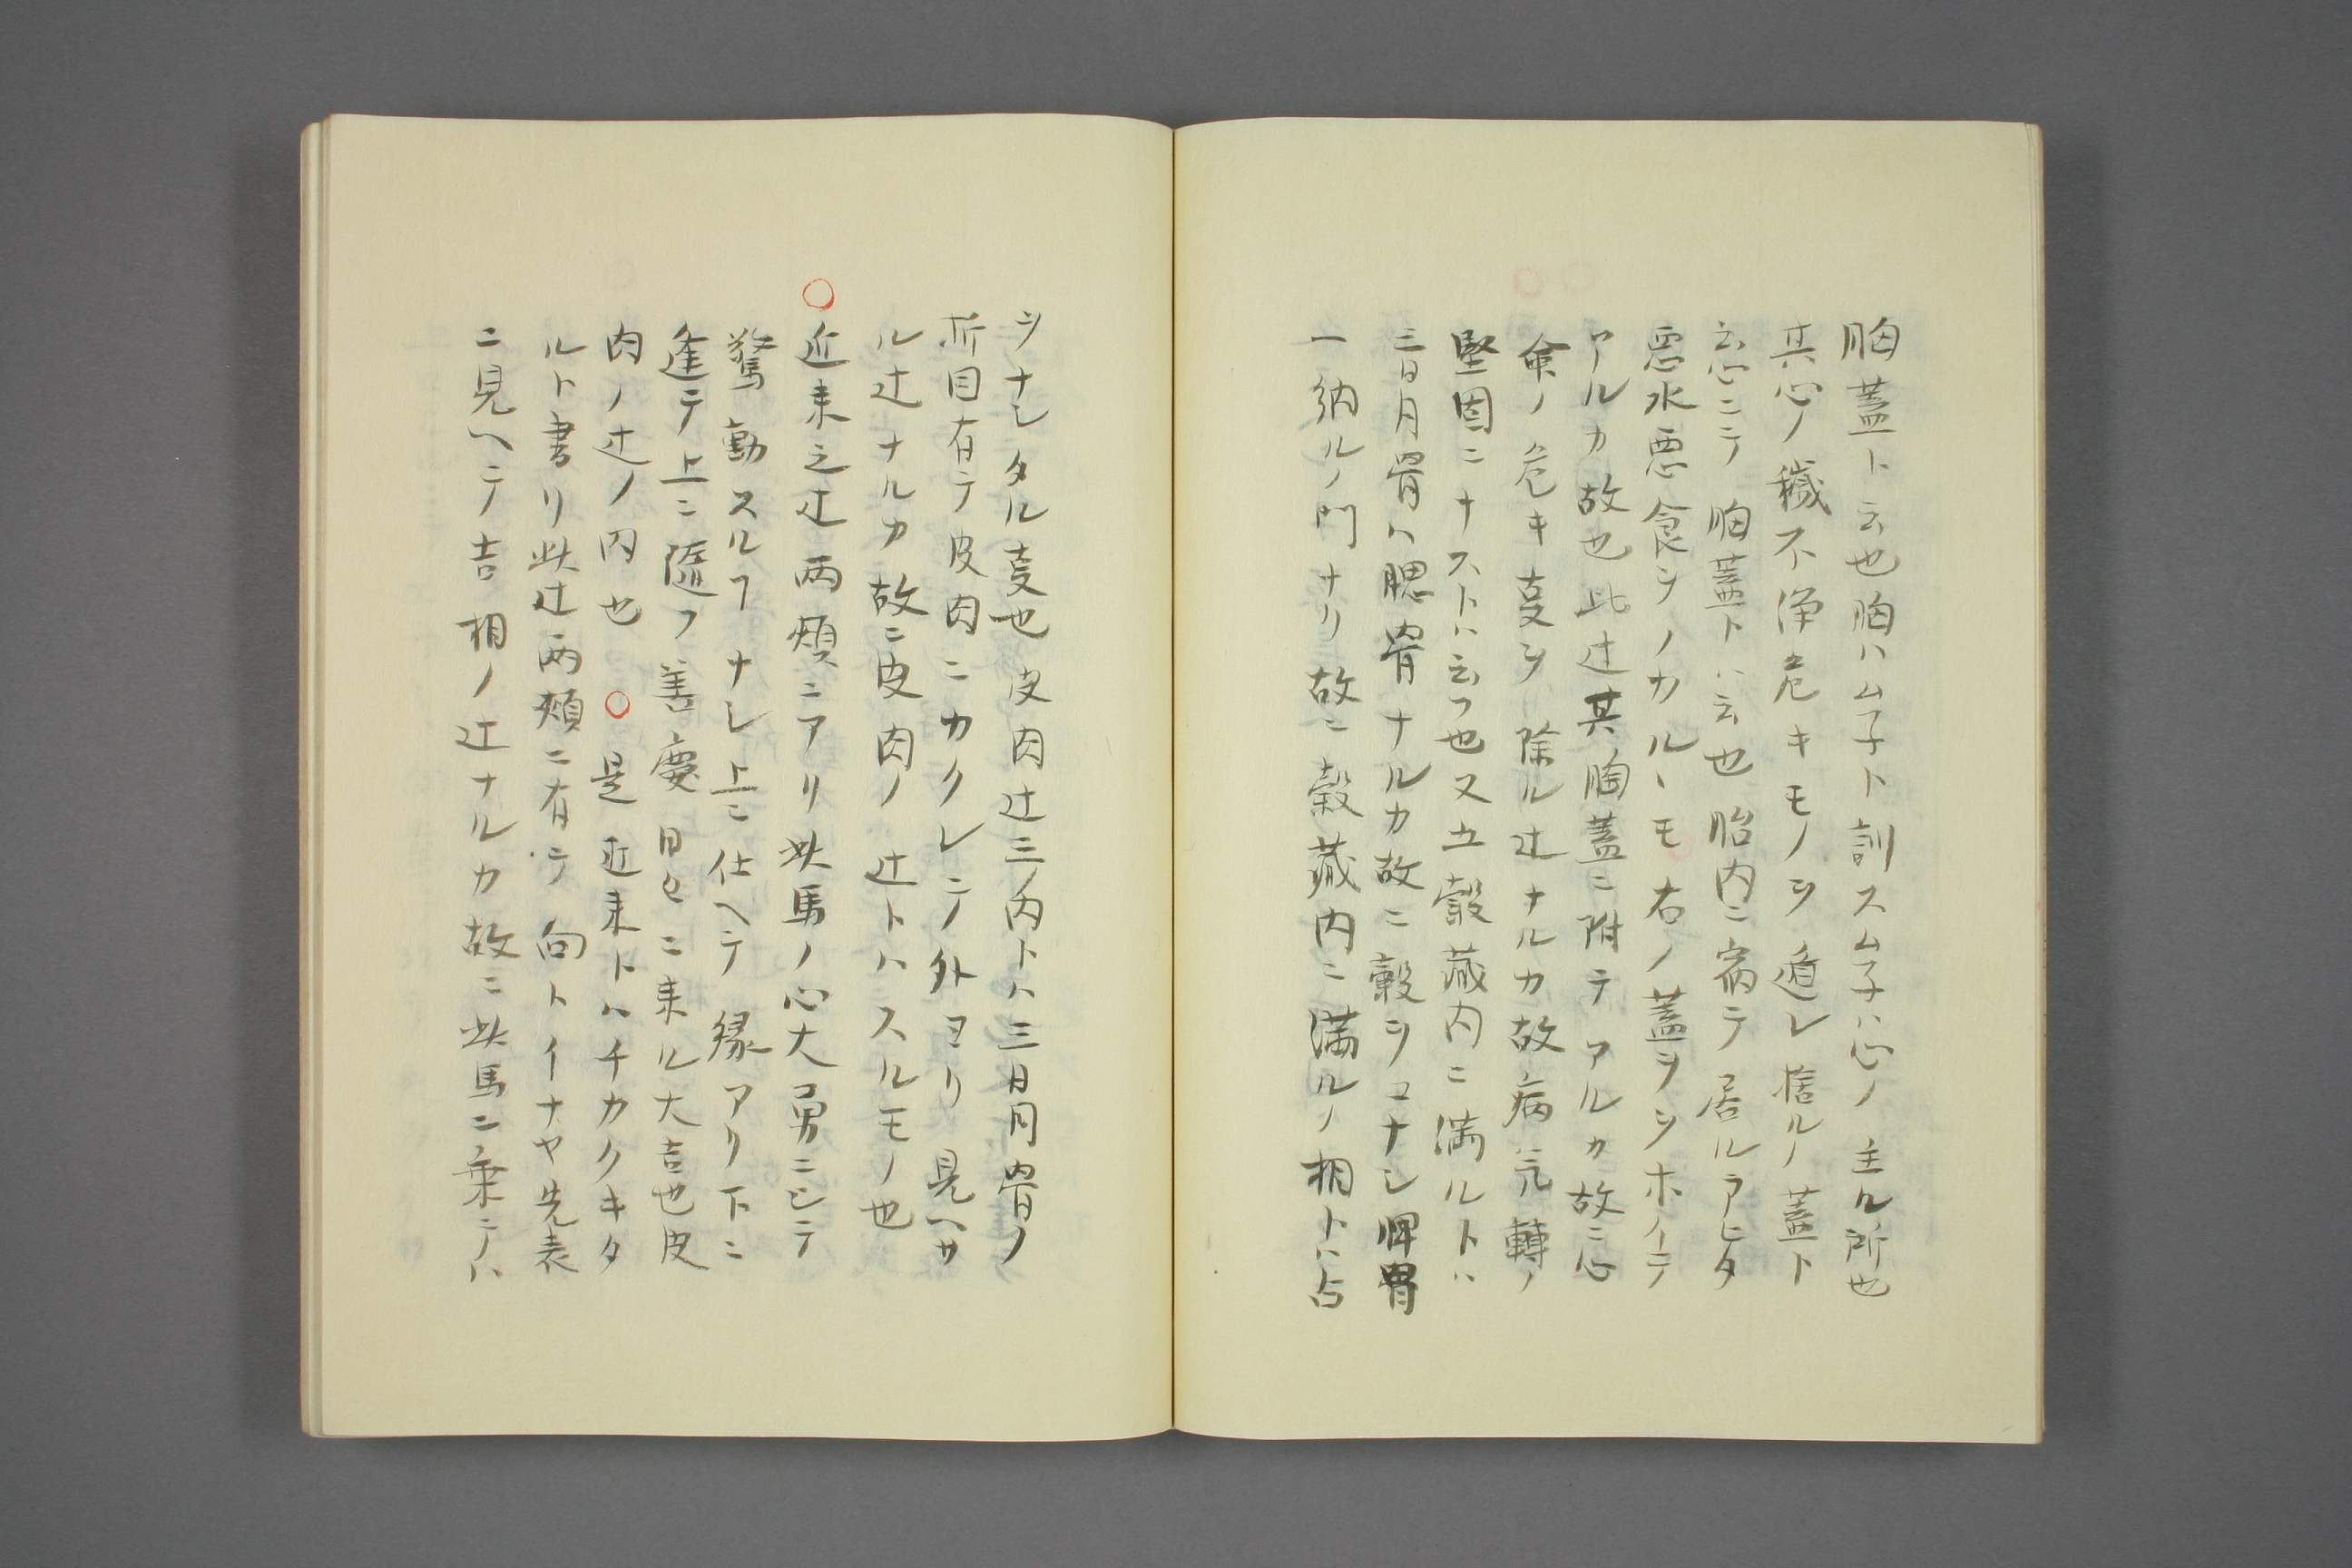 胸蓋ト云也胸ハム子ト訓スム子ハ心ノ主ル所也
其心ノ穢不浄危キモノヲ遁レ捨ルノ蓋ト
云心ニテ胸蓋トハ云也胎内ニ宿テ居ルアヒタ
悪水悪食ヲノカルヽモ右ノ蓋ヲシホイテ
アルカ故也此辻其胸蓋ニ附テアルカ故ニ心
命ノ危キ変ヲ除ル辻ナルカ故病気轉ノ
堅固ニナストハ云フ也又五穀蔵内ニ満ルトハ
三日月骨ハ腮骨ナルカ故ニ穀ヲコナシ脾胃
一納ルノ門ナリ故ニ穀蔵内ニ満ルノ相トハ占
シナシタル変也皮肉辻三ノ内トハ三日月骨ノ
所目有テ皮肉ニカクレテ外ヨリ見ヘサ
ル辻ナルカ故ニ皮肉ノ辻トハスルモノ也
○近来之辻両頬ニアリ此馬ノ心大勇ニシテ
驚動スルフナシ上ニ仕ヘテ縁アリ下ニ
逢テ上ニ随フ善慶日々ニ来ル大吉也皮
肉ノ辻ノ内也 ○是近来トハチカクキタ
ルト書リ此辻両頬ニ有テ向トイナヤ先表
ニ見ヘテ吉相ノ辻ナルカ故ニ此馬ニ乗テハ